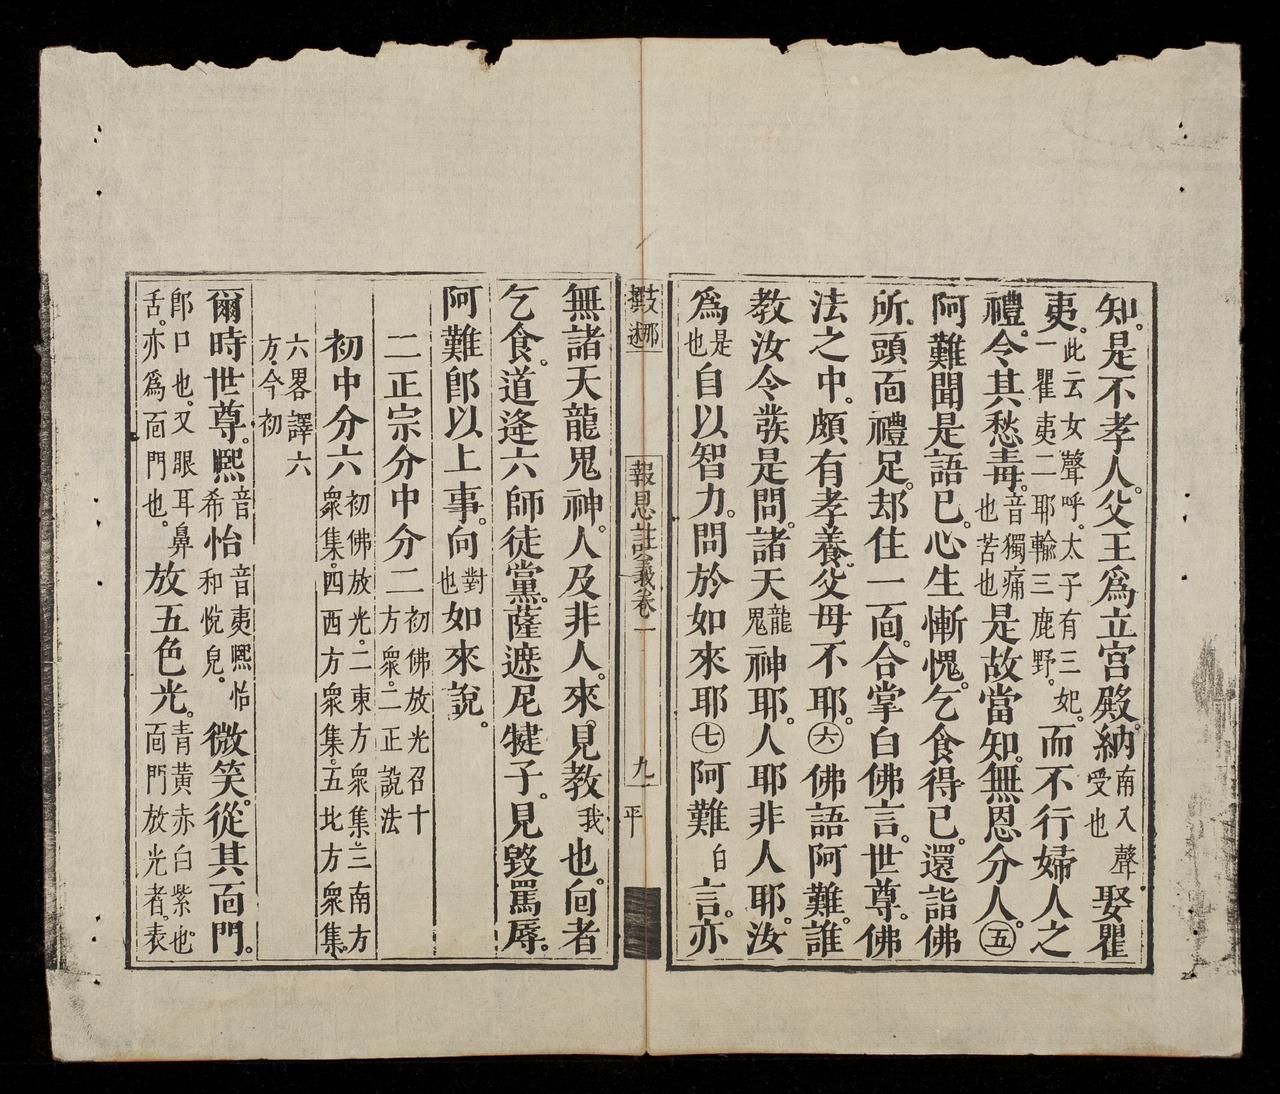 知。是不孝人。父王爲立宮殿。納南入聲受也娶瞿
夷。此云女聲呼。太子有三妃。一瞿夷二耶輸三鹿野。而不行婦人之
禮。令其愁毒。音獨痛也苦也是故當知。無恩分人。㊄
阿難聞是語已。心生慚愧。乞食得已。還詣佛
所。頭面禮足。却住一面。合掌白佛言。世尊。佛
法之中。頗有孝養父母不耶。㊅佛語阿難。誰
教汝令發是問。諸天龍鬼神耶。人耶非人耶。汝
爲是也自以智力。問於如來耶㊆阿難白言。亦
支那撰述
報恩註義卷一
九
平
無諸天龍鬼神。人及非人。來見教我也。向者
乞食。道逢六師徒黨。薩遮尼犍子。見毀罵辱。
阿難卽以上事。向對也如來說。
二正宗分中分二初佛放光召十方衆。二正說法
初中分六初佛放光。二東方衆集。三南方衆集。四西方衆集。五北方衆集
六畧譯六方。今初
爾時世尊。熙音希怡音夷熙怡和悅皃。微笑。從其面門。
卽口也。又眼耳鼻舌。亦爲面門也。放五色光。青黃赤白紫也。面門放光者。表